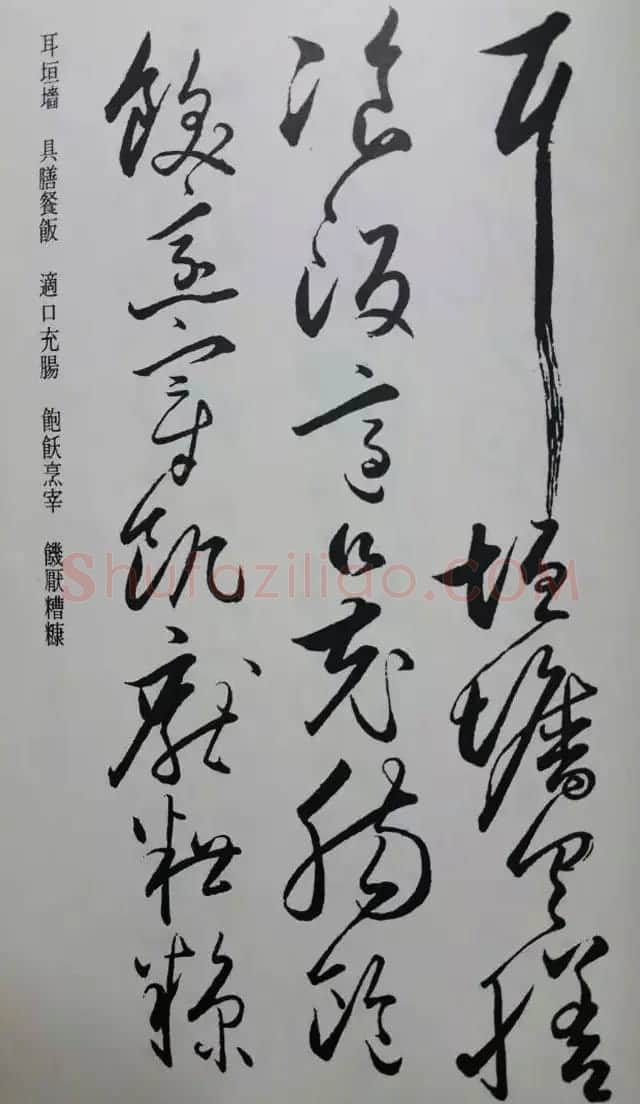 耳垣墻具膳
飡飯適口充腸飽
飫烹宰飢厭糟糠
耳垣墙 具膳餐飯 適口充腸 飽飫烹宰 饑厭糟糠
Shufaziliao.COM